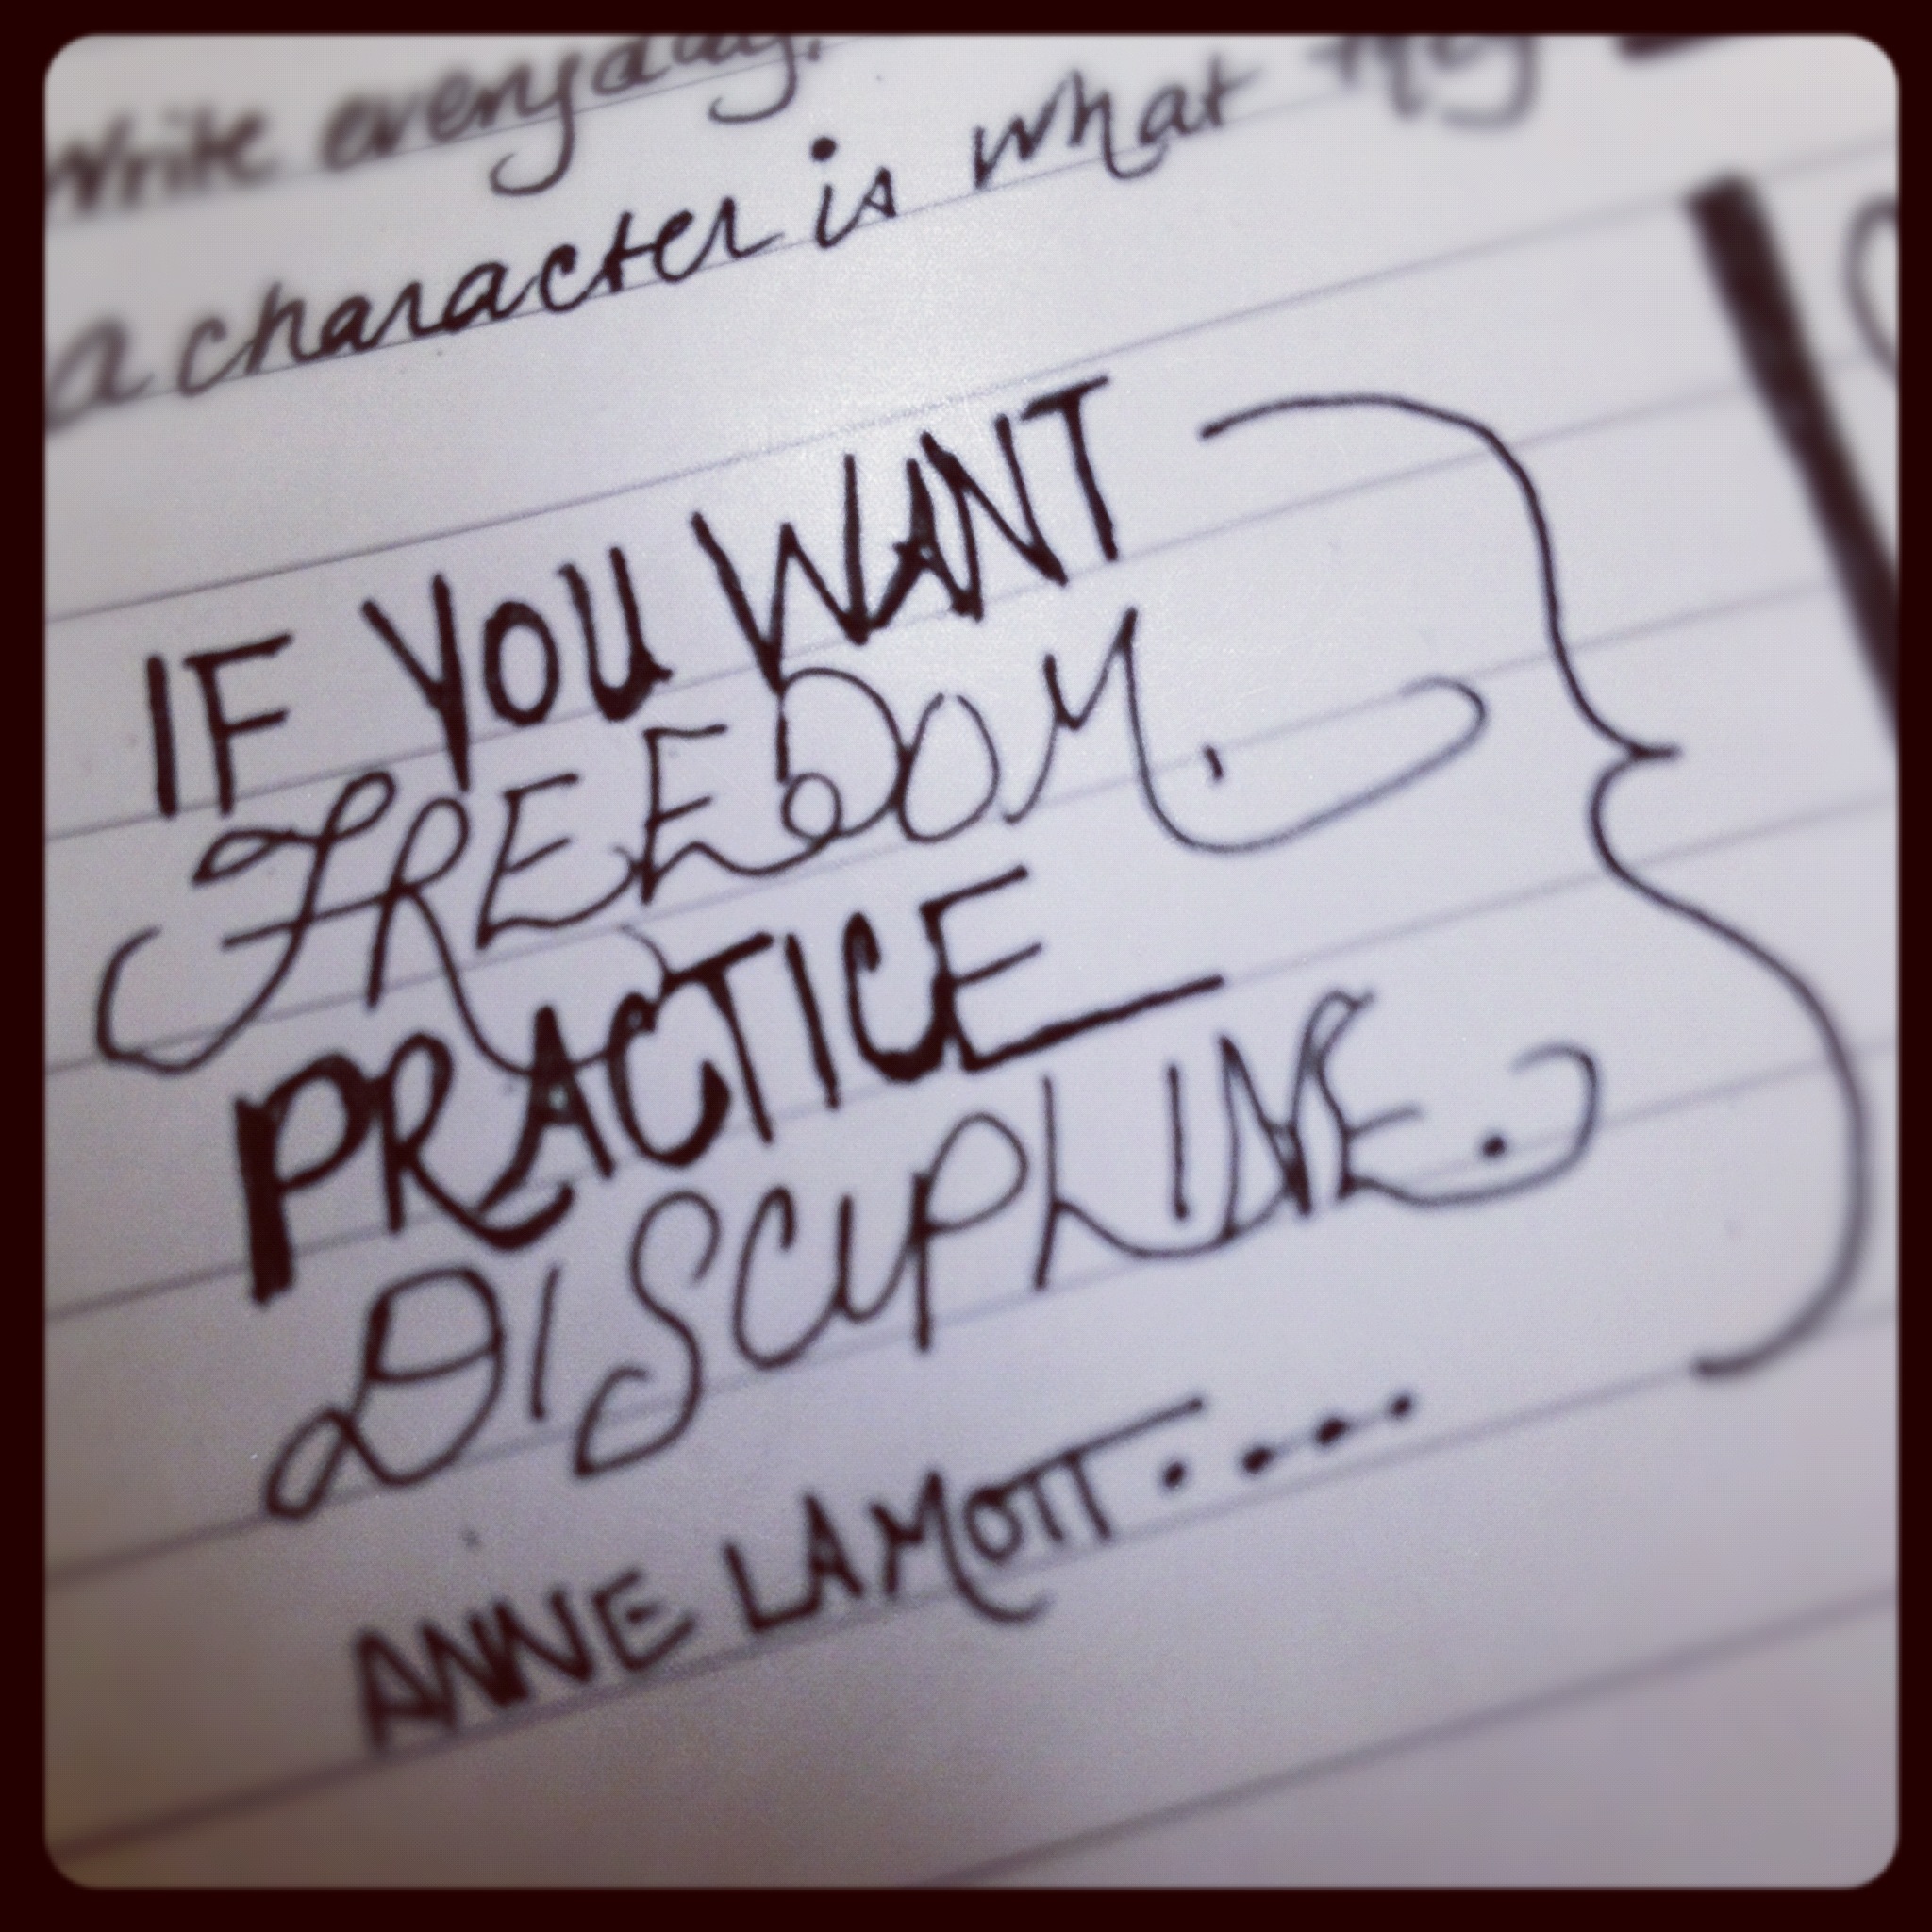 Write everyday.
a character is what they
IF YOU WANT
FREEDOM.
PRACTICE
DISCIPLINE.
ANNE LAMOTT....